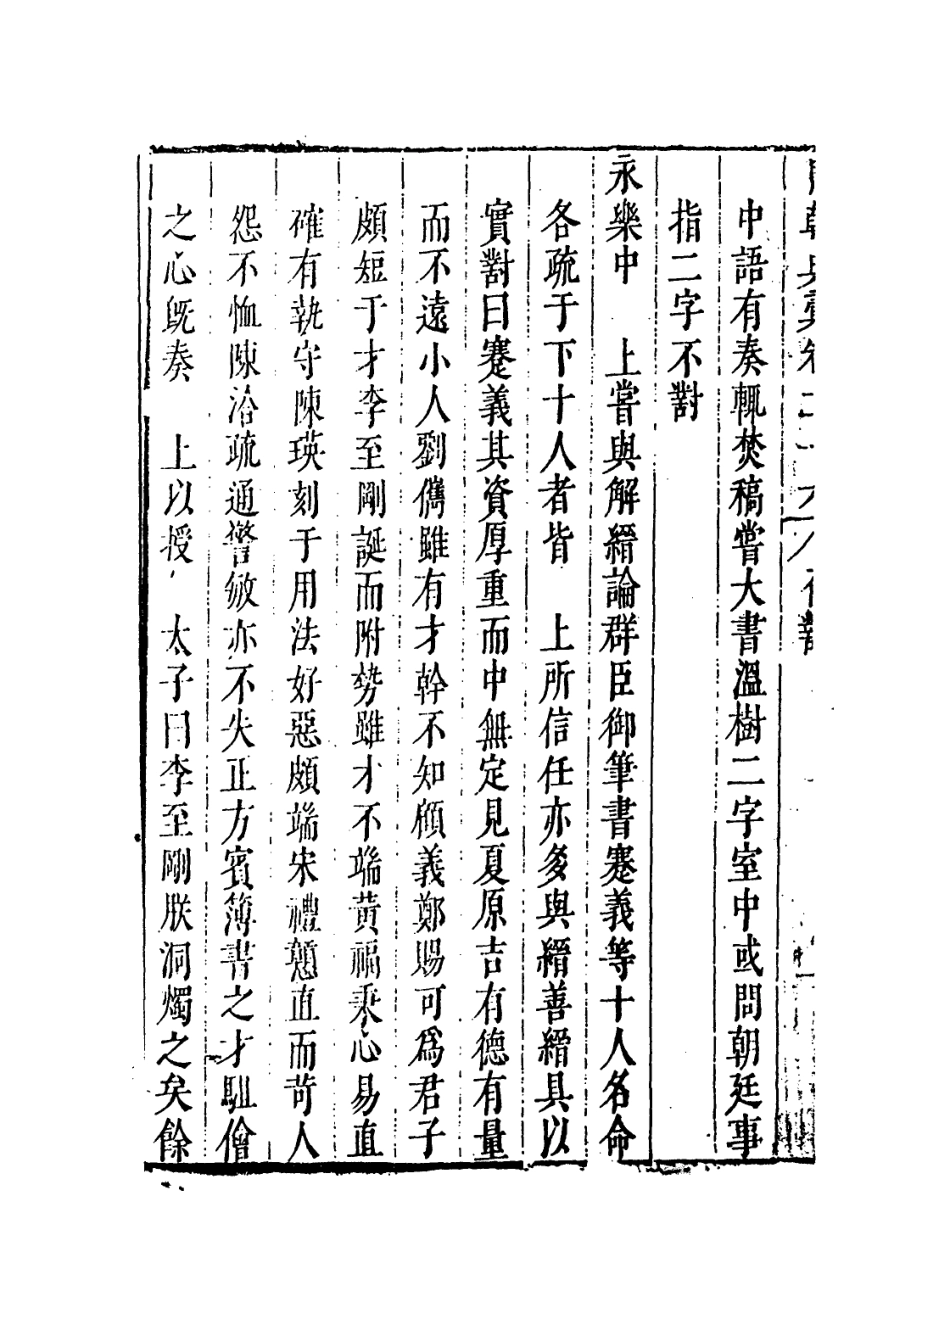 中語有奏輒焚稿嘗大書溫樹二字室中或問朝廷事
指二字不對
永樂中　上嘗與解縉論群臣御筆書蹇義等十人名命
各疏于下十人者皆　上所信任亦多與縉善縉具以
實對曰蹇義其資厚重而中無定見夏原吉有德有量
而不遠小人劉儁雖有才幹不知顧義鄭賜可為君子
頗短于才李至剛誕而附勢雖才不端黃福秉心易直
確有執守陳瑛刻于用法好惡頗端宋禮戇直而苛人
怨不恤陳洽疏通警敏亦不失正方賓簿書之才駔儈
之心既奏　上以授　太子曰李至剛朕洞燭之矣餘